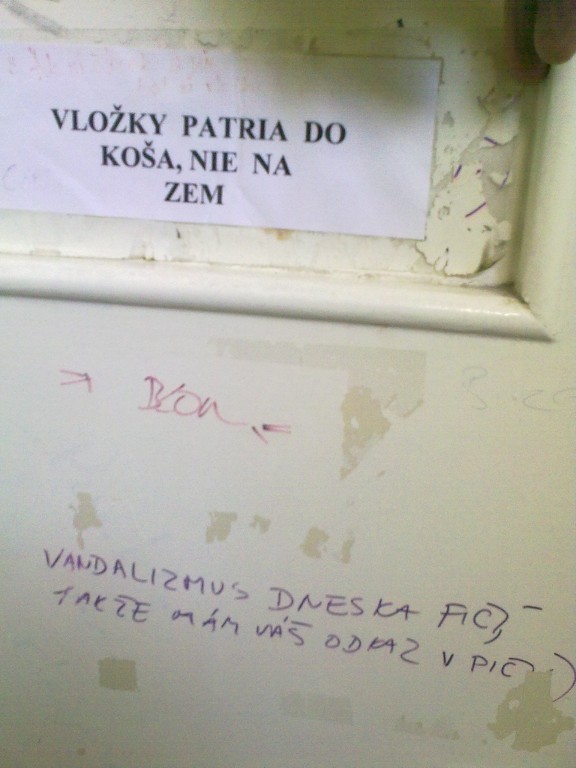 VLOŽKY PATRIA DO
KOŠA, NIE NA
ZEM
VANDALIZMUS DNESKA FIČÍ,
TAKŽE MÁM VÁŠ ODKAZ V PIČI :)